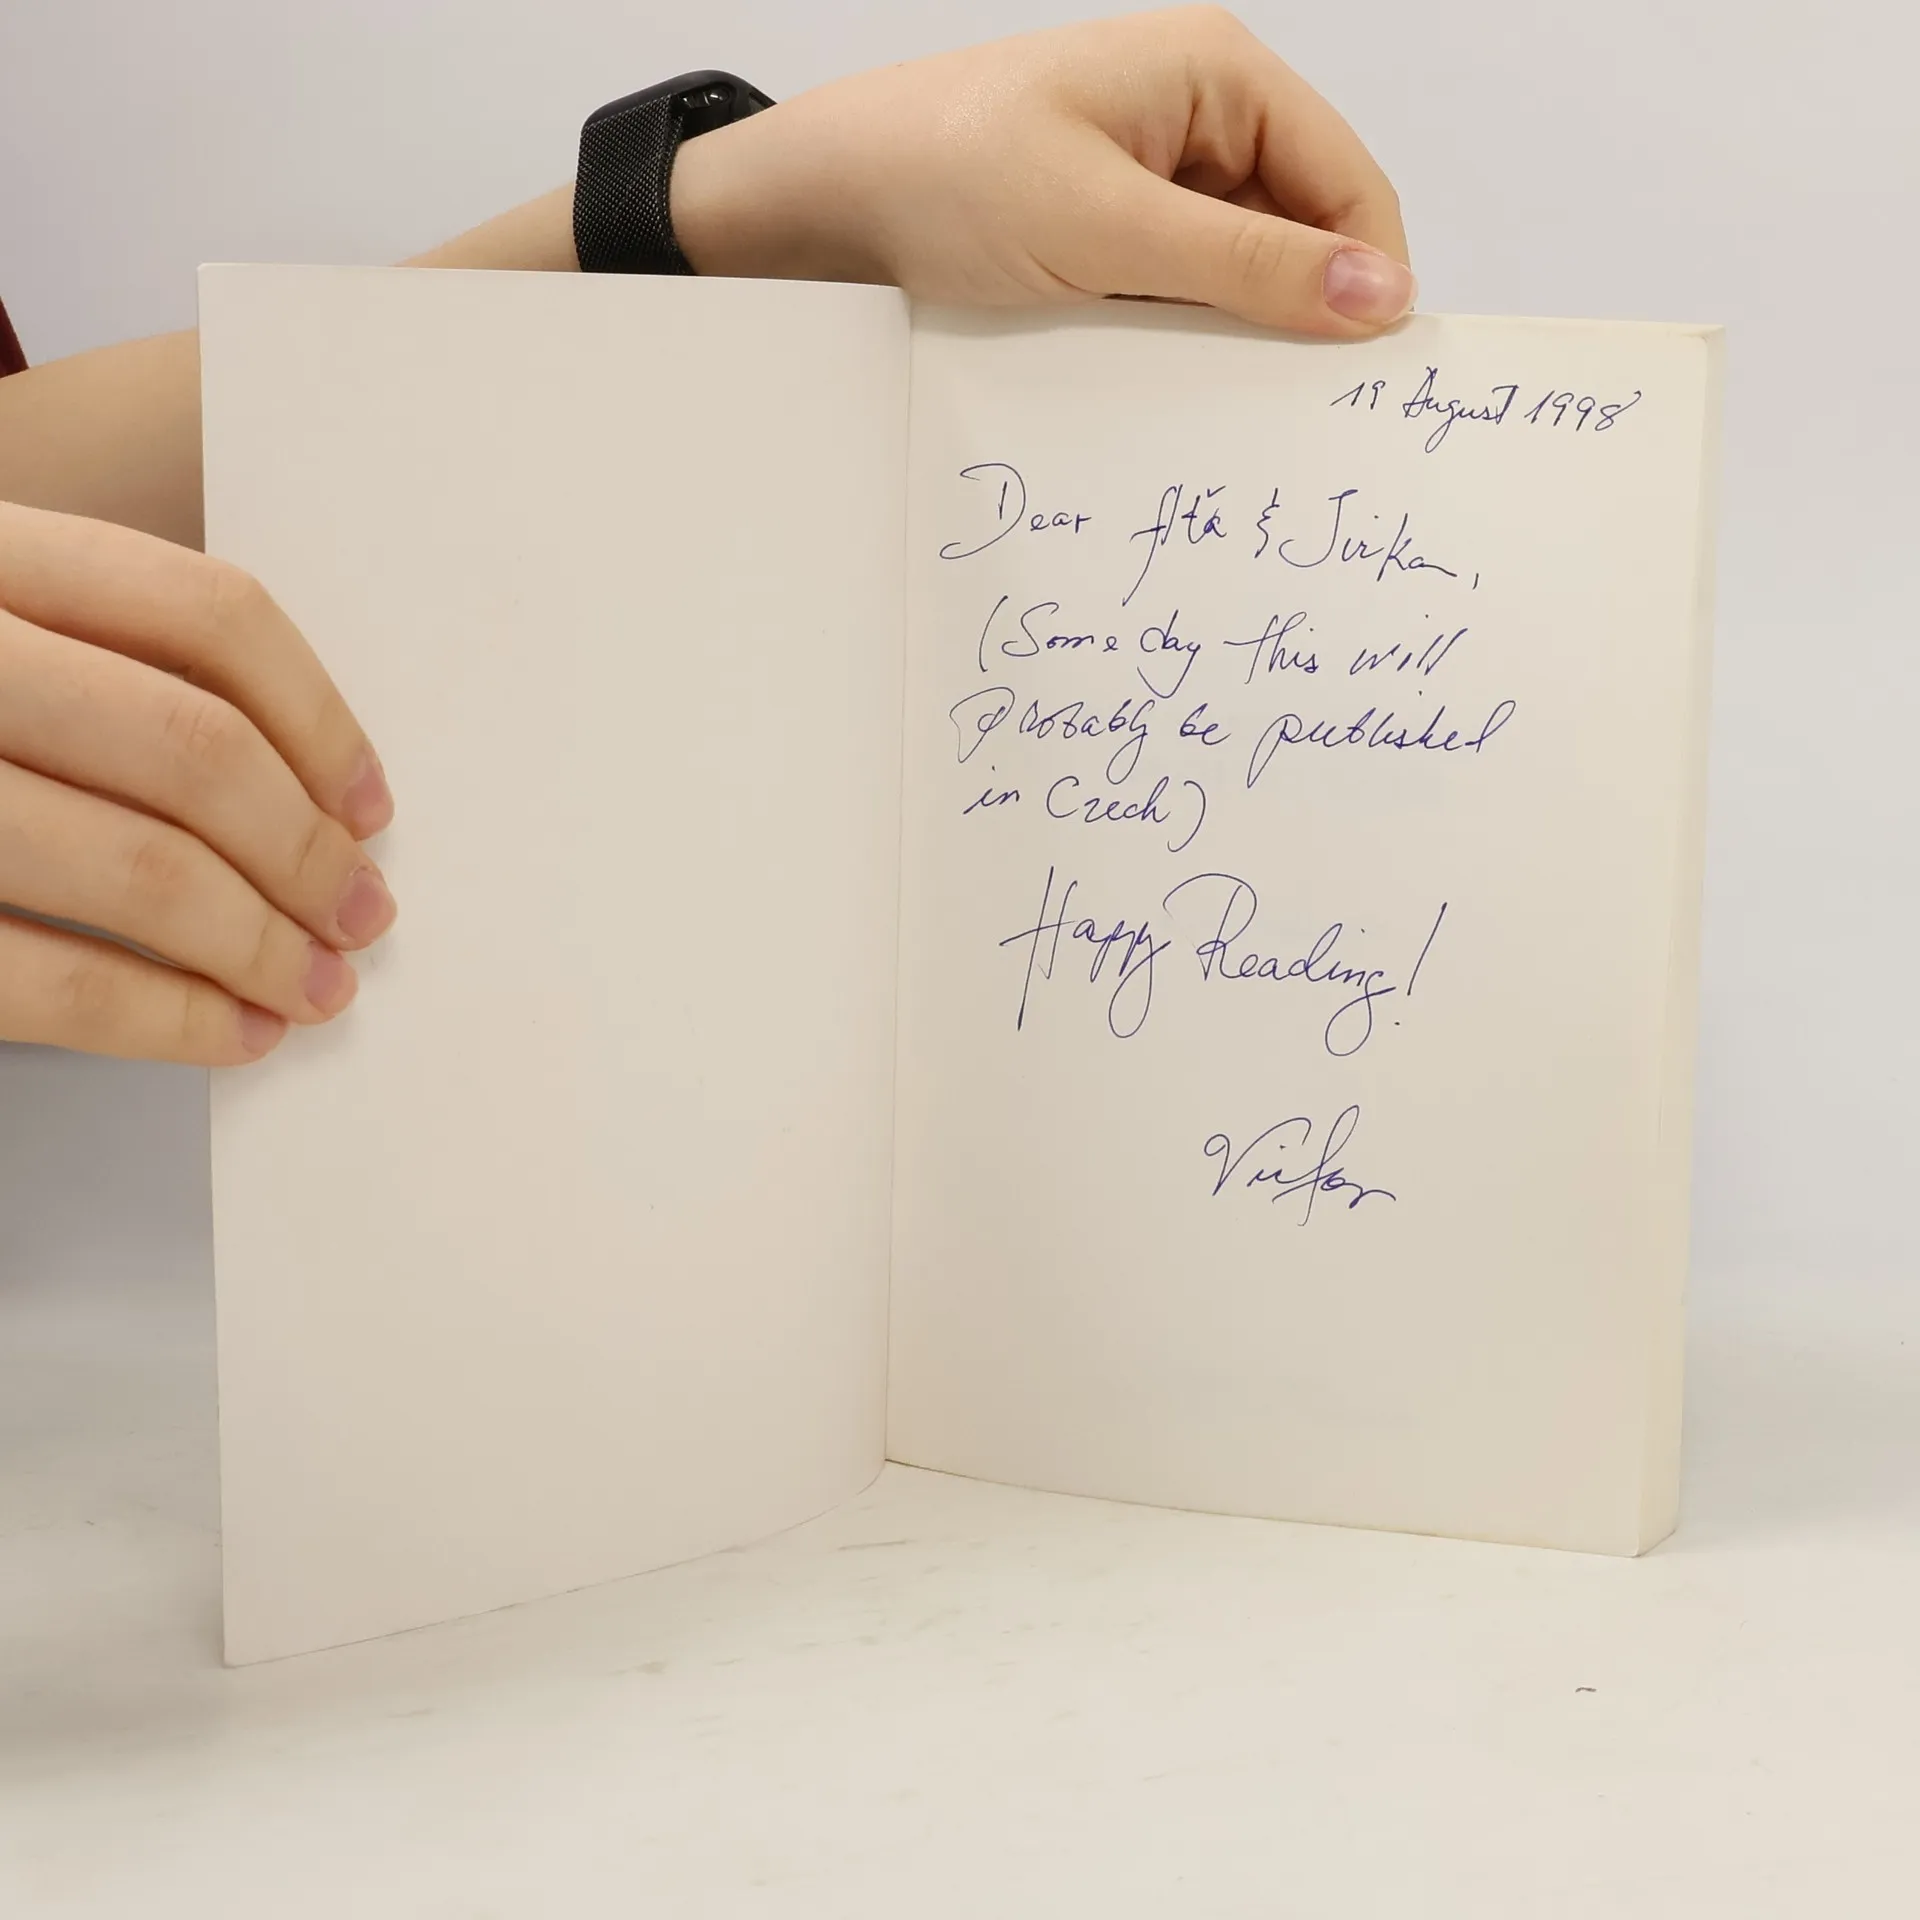 19 August 1998
Dear & Jirka,
(Some day this will
Probably be published
in Czech)
Happy Reading!
Victor